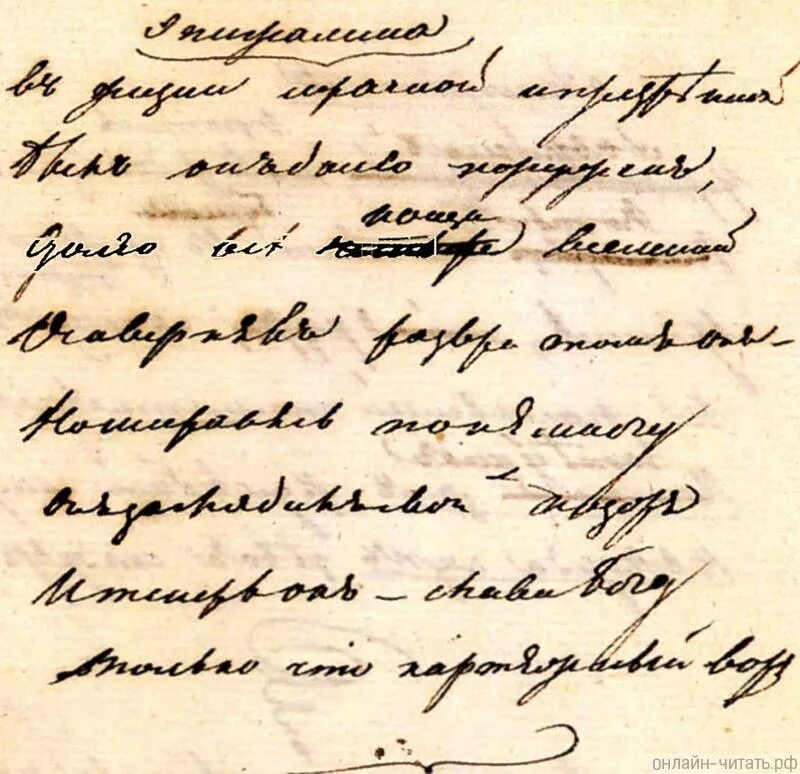 Эпиграмма
Въ жизни мрачной и презрѣнной
Былъ онъ долго погруженъ,
Долго всѣ концы вселенной
Осквернялъ развратомъ онъ –
Но исправясь по немногу
Онъ загладилъ свой позоръ
И теперь онъ – слава Богу
Только что картежный воръ
онлайн-читать.рф